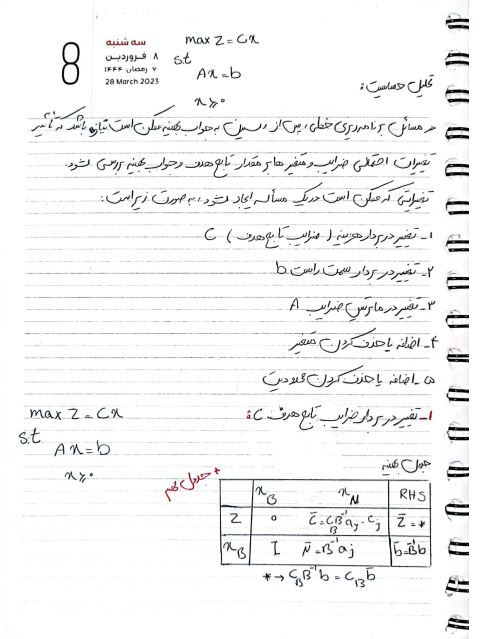 8
سه شنبه
۸ فروردین
۷ رمضان ۱۴۴۴
28 March 2023
max Z = Cx
s.t
Ax = b
x ≥ 0
تحلیل حساسیت:
در مسائل برنامه ریزی خطی، پس از رسیدن به جواب بهینه ممکن است نیاز باشد که تأثیر
تغییرات احتمالی ضرایب و متغیر ها بر مقدار تابع هدف و جواب بهینه بررسی شود.
تغییراتی که ممکن است در یک مسأله ایجاد شود، به صورت زیر است:
۱- تغییر در بردار هزینه (ضرایب تابع هدف) C
۲- تغییر در بردار سمت راست b
۳- تغییر در ماتریس ضرایب A
۴- اضافه یا حذف کردن متغیر
۵- اضافه یا حذف کردن محدودیت
۱- تغییر در بردار ضرایب تابع هدف C:
max Z = Cx
s.t
Ax = b
x ≥ 0
جدول بهینه
* جدول مهم
x_B x_N RHS
Z 0 C̄ = C_B B⁻¹a_j - C_j Z̄ = *
x_B I N̄ = B⁻¹a_j b̄ = B⁻¹b
* → C_B B⁻¹b = C_B b̄